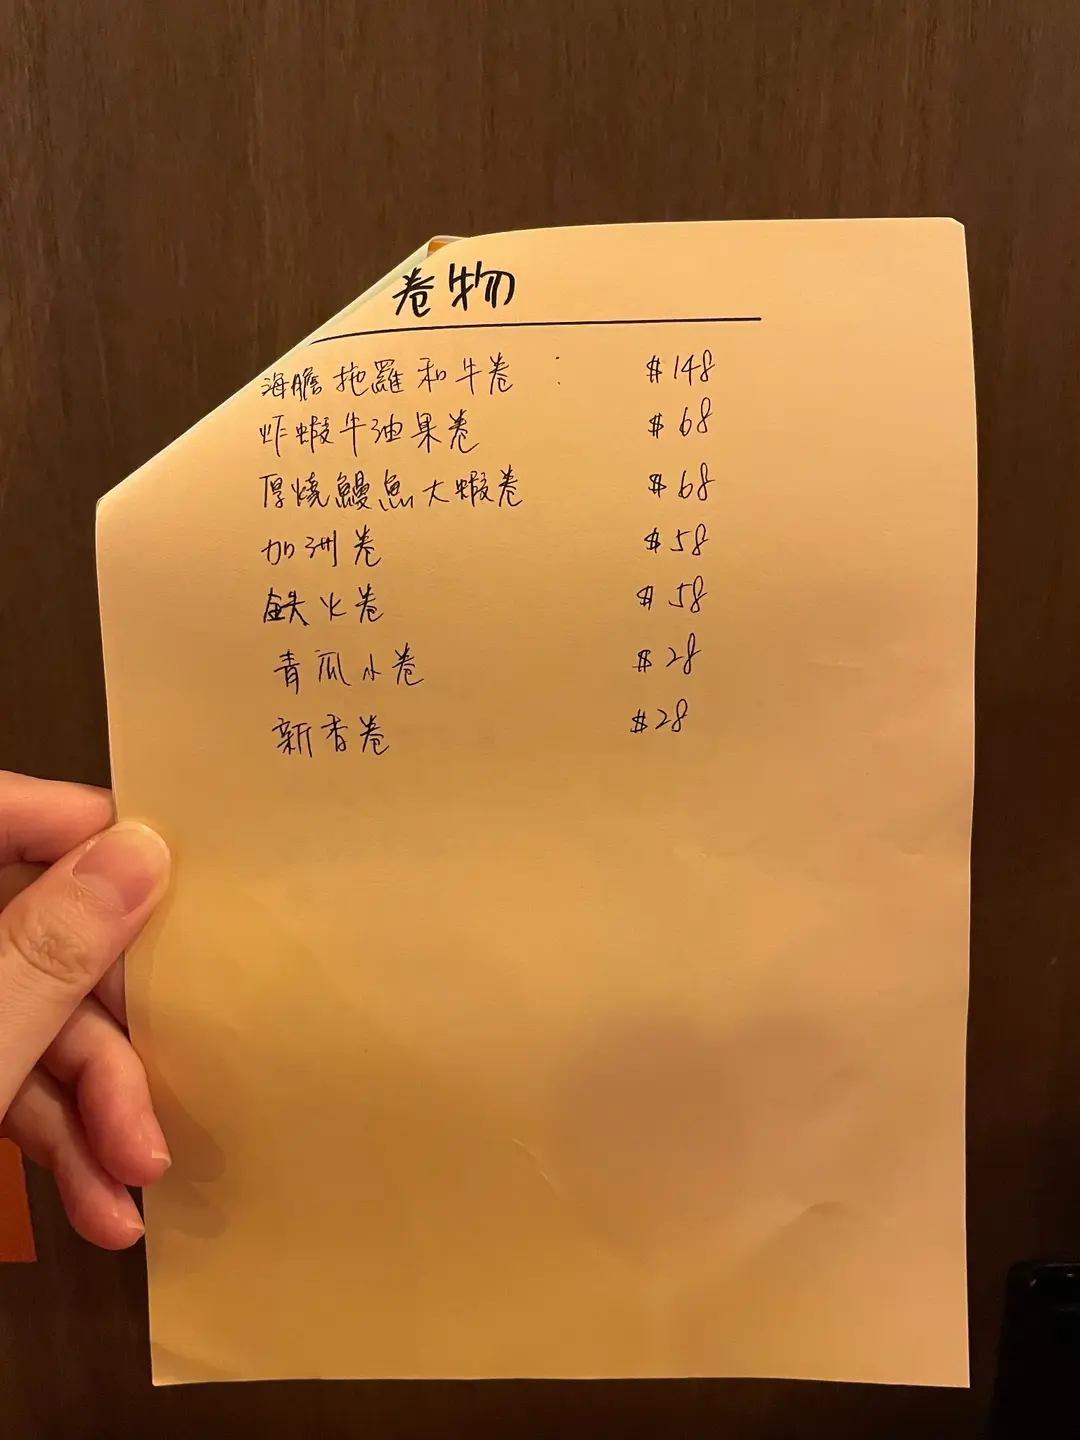 卷物
海膽拖羅和牛卷 : $148
炸蝦牛油果卷 $68
厚燒鰻魚大蝦卷 $68
加洲卷 $58
鉄火卷 $58
青瓜小卷 $28
新香卷 $28